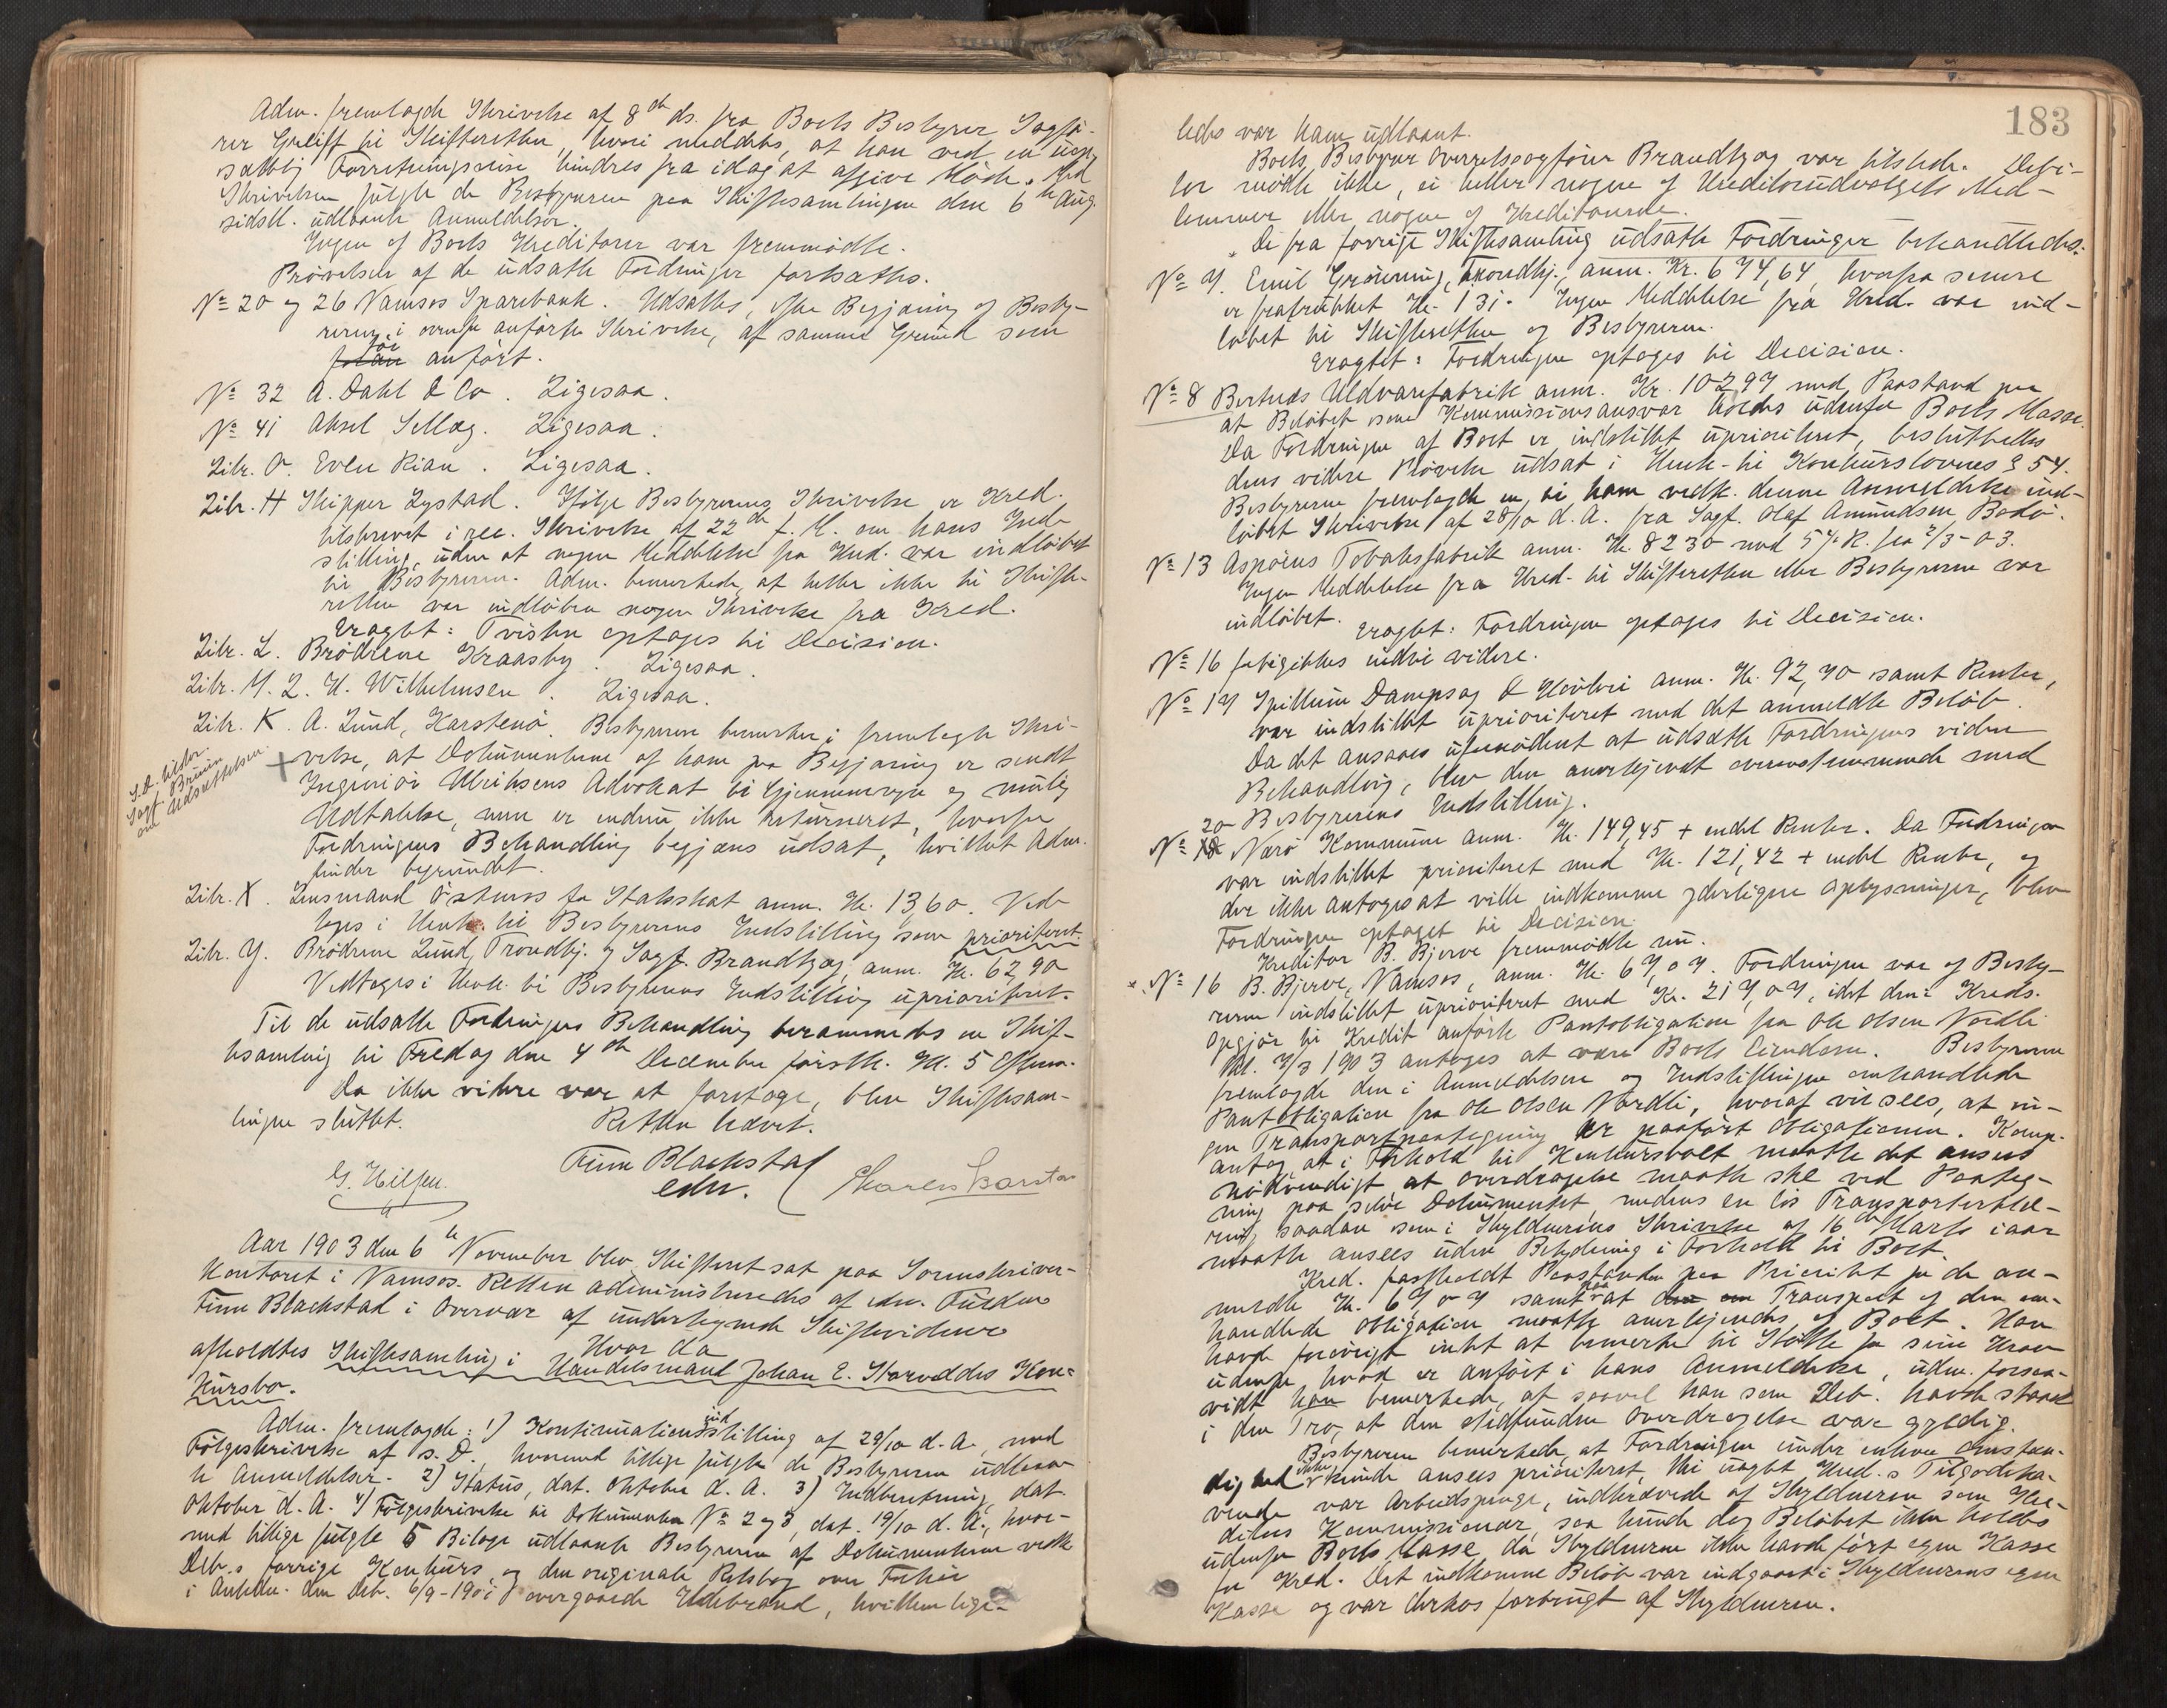 Adm. fremlagde Skrivelse af 8de ds. fra Boets Bestyrer Sagfø-
rer Greiff til Skifteretten, hvori meddeles, at han ved en uop-
sættelig Forretningsreise hindres fra idag at afgive Møde. Med
Skrivelsen fulgte de Bestyreren paa Skiftesamlingen den 6te Aug.
sidstl. udlaante Anmeldelser.
Ingen af Boets Kreditorer var fremmødte.
Prøvelsen af de udsatte Fordringer fortsattes.
No 20 og 26 Namsos Sparebank. Udsattes, efter Begjæring af Besty-
reren i ovenfor anførte Skrivelse, af samme Grund som
før anført.
No 32 A. Dahl & Co. Ligesaa.
No 41 Aksel Sellæg. Ligesaa.
Litr. O. Even Rian. Ligesaa.
Litr. H Skipper Lystad. Ifølge Bestyrerens Skrivelse er Kred.
tilskrevet i rec. Skrivelse af 22de f. M. om hans Ind-
stilling, uden at nogen Meddelelse fra Kred. var indløbet
til Bestyreren. Adm. bemerkede, at heller ikke til Skifte-
retten var indløben nogen Skrivelse fra Kred.
Eragtet: Tvisten optages til Decision.
Litr. L. Brødrene Kraasby. Ligesaa.
Litr. M. L. H. Wilhelmsen. Ligesaa.
Litr. K. A. Lund, Karstenø. Bestyreren bemerker i fremlagte Skri-
velse, at Dokumenterne af ham paa Begjæring er sendt
Ingeniør Ulriksens Advokat til Gjennemsyn og mulig
Udtalelse, men er endnu ikke returneret, hvorfor
Fordringens Behandling begjæres udsat, hvilket Adm.
finder begrundet.
S. D. tilskr.
Sagf. Bruun
om Udsættelsen.
Litr. X. Lensmand Østnes for Statsskat anm. Kr. 13,60. Ved-
toges i Henh. til Bestyrerens Indstilling som prioriteret.
Litr. Y. Brødrene Lund, Trondhj. v/ Sagf. Brandtzæg, anm. Kr. 62,90
Vedtoges i Henh. til Bestyrerens Indstilling uprioriteret.
Til de udsatte Fordringers Behandling berammedes en Skif-
tesamling til Fredag den 4de December førstk. Kl. 5 Efterm.
Da ikke videre var at foretage, blev Skiftesam-
lingen sluttet.
Retten hævet.
Finn Blackstad
edsv.
G. Hilsen.
Aar 1903 den 6te November blev Skifteret sat paa Sorenskriver-
kontoret i Namsos. Retten administreredes af edsv. Fuldm.
Finn Blackstad i Overvær af undertegnede Skiftevidner
Hvor da
afholdtes Skiftesamling i Handelsmand Johan E. Storvoldes Kon-
kursbo.
Adm. fremlagde: 1) Kontinuationsindstilling af 29/10 d. A., med
Følgeskrivelse af s. D., hvormed tillige fulgte de Bestyreren udlaan-
te Anmeldelser. 2) Status, dat. Oktober d. A. 3) Indberetning, dat.
Oktober d. A. 4) Følgeskrivelse til Dokumenter No 2 og 3, dat. 19/10 d. A., hvor-
med tillige fulgte 5 Bilage udlaante Bestyreren af Dokumenterne vedk.
Deb.s forrige Konkurs, og den originale Retsbog over Forhør
i Anledn. den Deb. 6/9-1901 overgaaede Ildebrand, hvilken lige-
183
ledes var ham udlaant.
Boets Bestyrer Overretssagfører Brandtzæg var tilstede. Debi-
tor mødte ikke, ei heller nogen af Kreditorudvalgets Med-
lemmer eller nogen af Kreditorerne.
De fra forrige Skiftesamling udsatte Fordringer behandledes:
No 7. Emil Grønning, Trondhj., anm. Kr. 674,64, hvorfra senere
er frafrukket Kr. 131. Ingen Meddelelse fra Kred. var ind-
løbet til Skifteretten og Bestyreren.
Eragtet: Fordringen optages til Decision.
No 8 Bertnes Uldvarefabrik anm. Kr. 102,97 med Paastand paa
at Beløbet som Kommissionsansvar holdes udenfor Boets Masse.
Da Fordringen af Boet er indstillet uprioriteret, besluttedes
dens videre Prøvelse udsat i Henh. til Konkurslovens § 54.
Bestyreren fremlagde en til ham vedk. denne Anmeldelse ind-
løbet Skrivelse af 28/10 d. A. fra Sagf. Olaf Amundsen Bodø.
No 13 Aspøens Tobaksfabrik anm. Kr. 82,30 med 5% R. fra 2/3-03.
Ingen Meddelelse fra Kred. til Skifteretten eller Bestyreren var
indløbet.
Eragtet: Fordringen optages til Decision.
No 16 forbigikkes indtil videre.
No 17 Spillum Dampsag & Høvleri anm. Kr. 92,70 samt Renter,
var indstillet uprioriteret med det anmeldte Beløb.
Da det ansaaes ufornødent at udsætte Fordringens videre
Behandling, blev den anerkjendt overensstemmende med
Bestyrerens Indstilling.
No 20 Nærø Kommune anm. Kr. 149,45 + endel Renter. Da Fordringen
var indstillet prioriteret med Kr. 121,42 + endel Renter, og
der ikke antoges at ville indkomme yderligere Oplysninger, blev
Fordringen optaget til Decision.
Kreditor B. Bjerve fremmødte nu.
No 16 B. Bjerve, Namsos, anm. Kr. 67,07. Fordringen var af Besty-
reren indstillet uprioriteret med Kr. 217,07, idet den i Kreds.
Opgjør til Kredit anførte Pantobligation fra Ole Olsen Nordli
dat. 7/3 1903 antoges at være Boets Eiendom. Bestyreren
fremlagde den i Anmeldelsen og Indstillingen omhandlede
Pantobligation fra Ole Olsen Nordli, hvoraf vil sees, at in-
gen Transportpaategning er paaført Obligationen. Komp.
antog, at i Forhold til Konkursboet maatte det ansees
nødvendigt at Overdragelse maatte ske ved Paateg-
ning paa selve Dokumentet, medens en løs Transporterklæ-
ring saadan som i Skyldnerens Skrivelse af 16de Marts iaar
maatte ansees uden Betydning i Forhold til Boet.
Kred. fastholdt Paastanden paa Prioritet for de an-
meldte Kr. 67,07 samt paa at Transport af den om-
handlede Obligation maatte anerkjendes af Boet. Han
havde forøvrigt intet at bemerke til Støtte for sine Krav
udenfor hvad er anført i hans Anmeldelse, uden forsaa-
vidt han bemerkede, at saavel han som Deb. havde staaet
i den Tro, at den stedfundne Overdragelse var gyldig.
Bestyreren bemerkede, at Fordringen under enhver Omstæn-
dighed ikke kunde ansees prioriteret, thi uagtet Kred.s Tilgodeha-
vende var Arbeidspenge, indkrævede af Skyldneren som Kre-
ditors Kommissionær, saa kunde dog Beløbet ikke holdes
udenfor Boets Masse, da Skyldneren ikke havde ført egen Kasse
for Kred. Det indkomne Beløb var indgaaet i Skyldnerens egen
Kasse og var derhos forbrugt af Skyldneren.